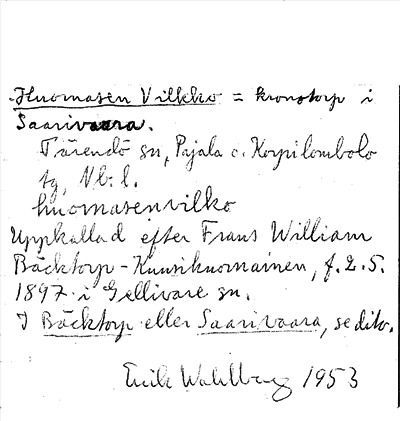 Huomasen Vilkko = kronotorp i
Saarivaara.
Tärendö sn, Pajala o. Korpilombolo
tg, Nb. l.
huomasenvilko
Uppkallad efter Frans William
Bäcktorp - Kuusihuornainen, f. 2.5.
1897 i Gellivare sn.
I Bäcktorp eller Saarivaara, se dito.
Erik Wahlberg 1953